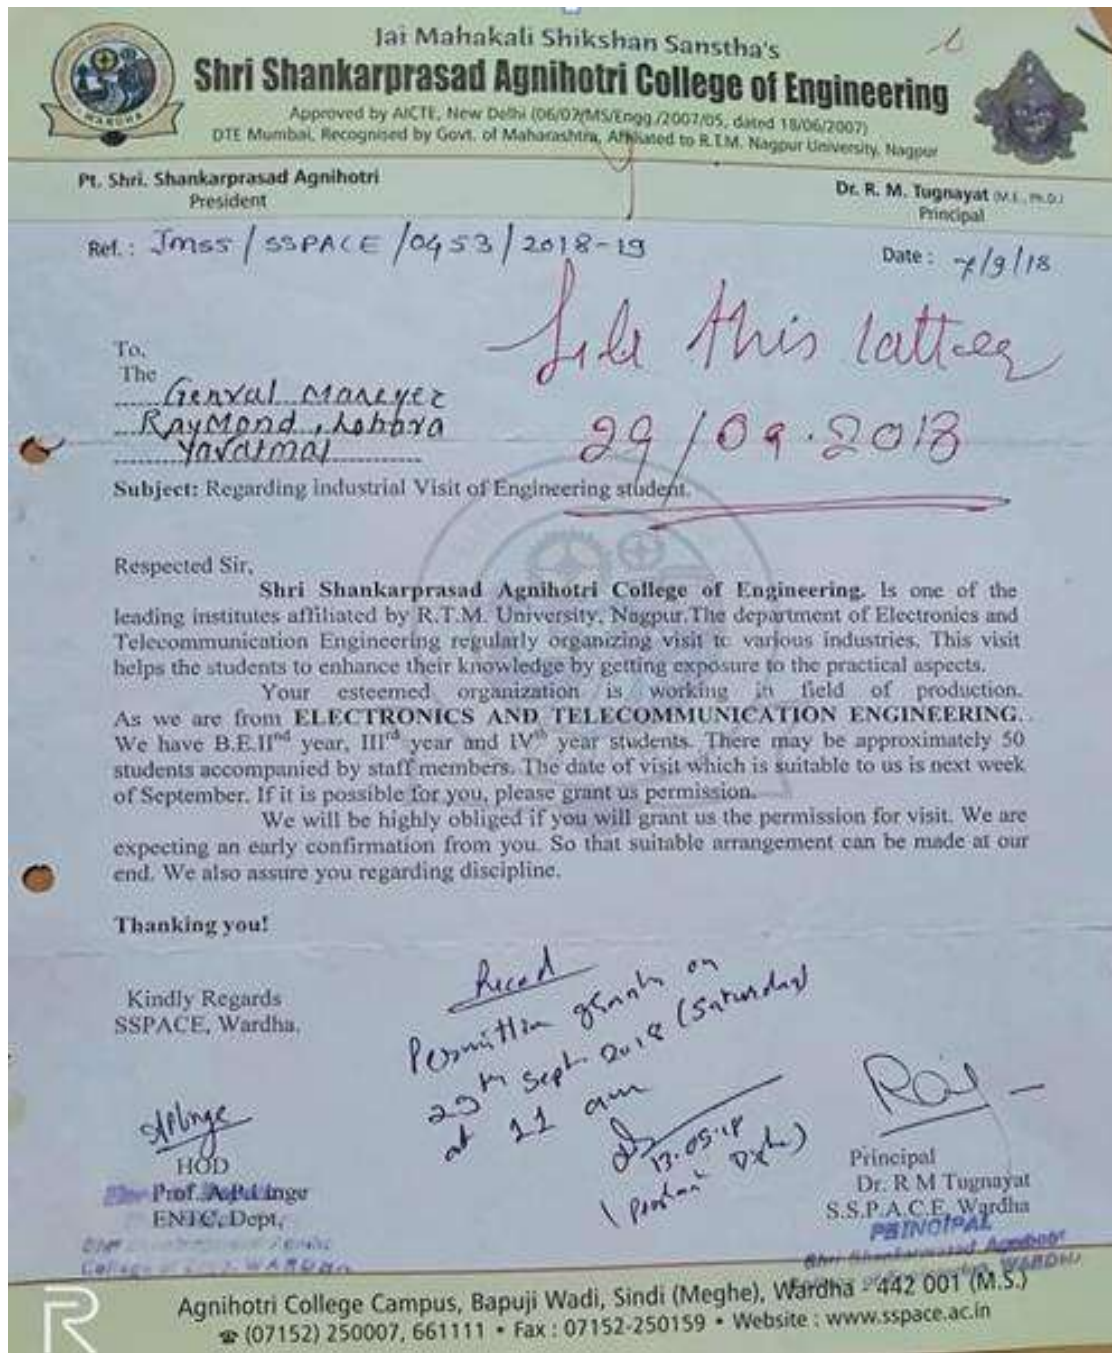 Jai Mahakali Shikshan Sanstha's
Shri Shankarprasad Agnihotri College of Engineering
Approved by AICTE, New Delhi (06/07/MS/Engg./2007/05, dated 18/06/2007)
DTE Mumbai, Recognised by Govt. of Maharashtra, Affiliated to R.T.M. Nagpur University, Nagpur
WARDHA
Pt. Shri. Shankarprasad Agnihotri
President
Dr. R. M. Tugnayat (M.E., Ph.D.)
Principal
Ref. : JMSS / SSPACE / 0453 / 2018-19
Date : 7/9/18
file this latter
29/09.2018
To,
The
Genral Maneger
RayMond, Lohora
Yavatmal
Subject: Regarding industrial Visit of Engineering student.
Respected Sir,
Shri Shankarprasad Agnihotri College of Engineering. Is one of the
leading institutes affiliated by R.T.M. University, Nagpur.The department of Electronics and
Telecommunication Engineering regularly organizing visit to various industries. This visit
helps the students to enhance their knowledge by getting exposure to the practical aspects.
Your esteemed organization is working in field of production.
As we are from ELECTRONICS AND TELECOMMUNICATION ENGINEERING.
We have B.E.IInd year, IIIrd year and IVth year students. There may be approximately 50
students accompanied by staff members. The date of visit which is suitable to us is next week
of September. If it is possible for you, please grant us permission.
We will be highly obliged if you will grant us the permission for visit. We are
expecting an early confirmation from you. So that suitable arrangement can be made at our
end. We also assure you regarding discipline.
Thanking you!
Kindly Regards
SSPACE, Wardha.
Recd
Permittion grants on
29th Sept. 2018 (Saturday)
at 11 am
HOD
Prof. A.P.Linge
ENTC, Dept,
WARDHA
Principal
Dr. R M Tugnayat
S.S.P.A.C.E, Wardha
PRINCIPAL
Shri Shankarprasad Agnihotri
WARDHA
Agnihotri College Campus, Bapuji Wadi, Sindi (Meghe), Wardha - 442 001 (M.S.)
☎ (07152) 250007, 661111 • Fax : 07152-250159 • Website : www.sspace.ac.in
R